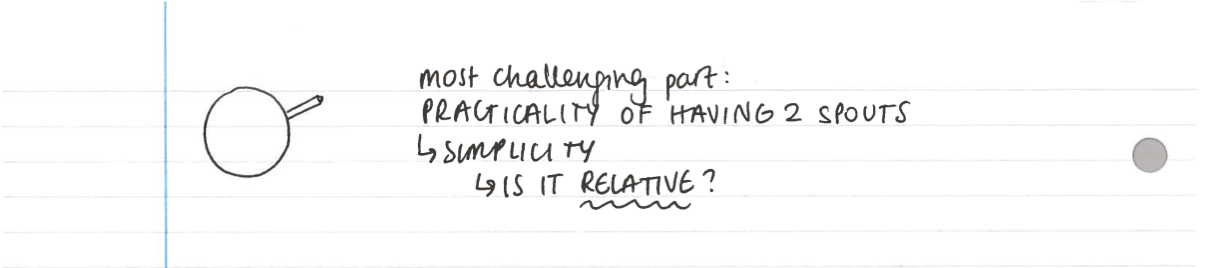 most challenging part:
PRACTICALITY OF HAVING 2 SPOUTS
↳ SIMPLICITY
↳ IS IT RELATIVE?